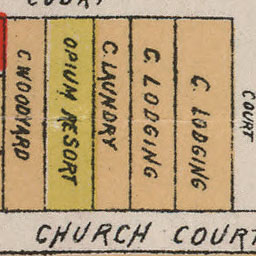 COURT
C. WOODYARD
OPIUM RESORT
C. LAUNDRY
C. LODGING
C. LODGING
COURT
CHURCH COURT